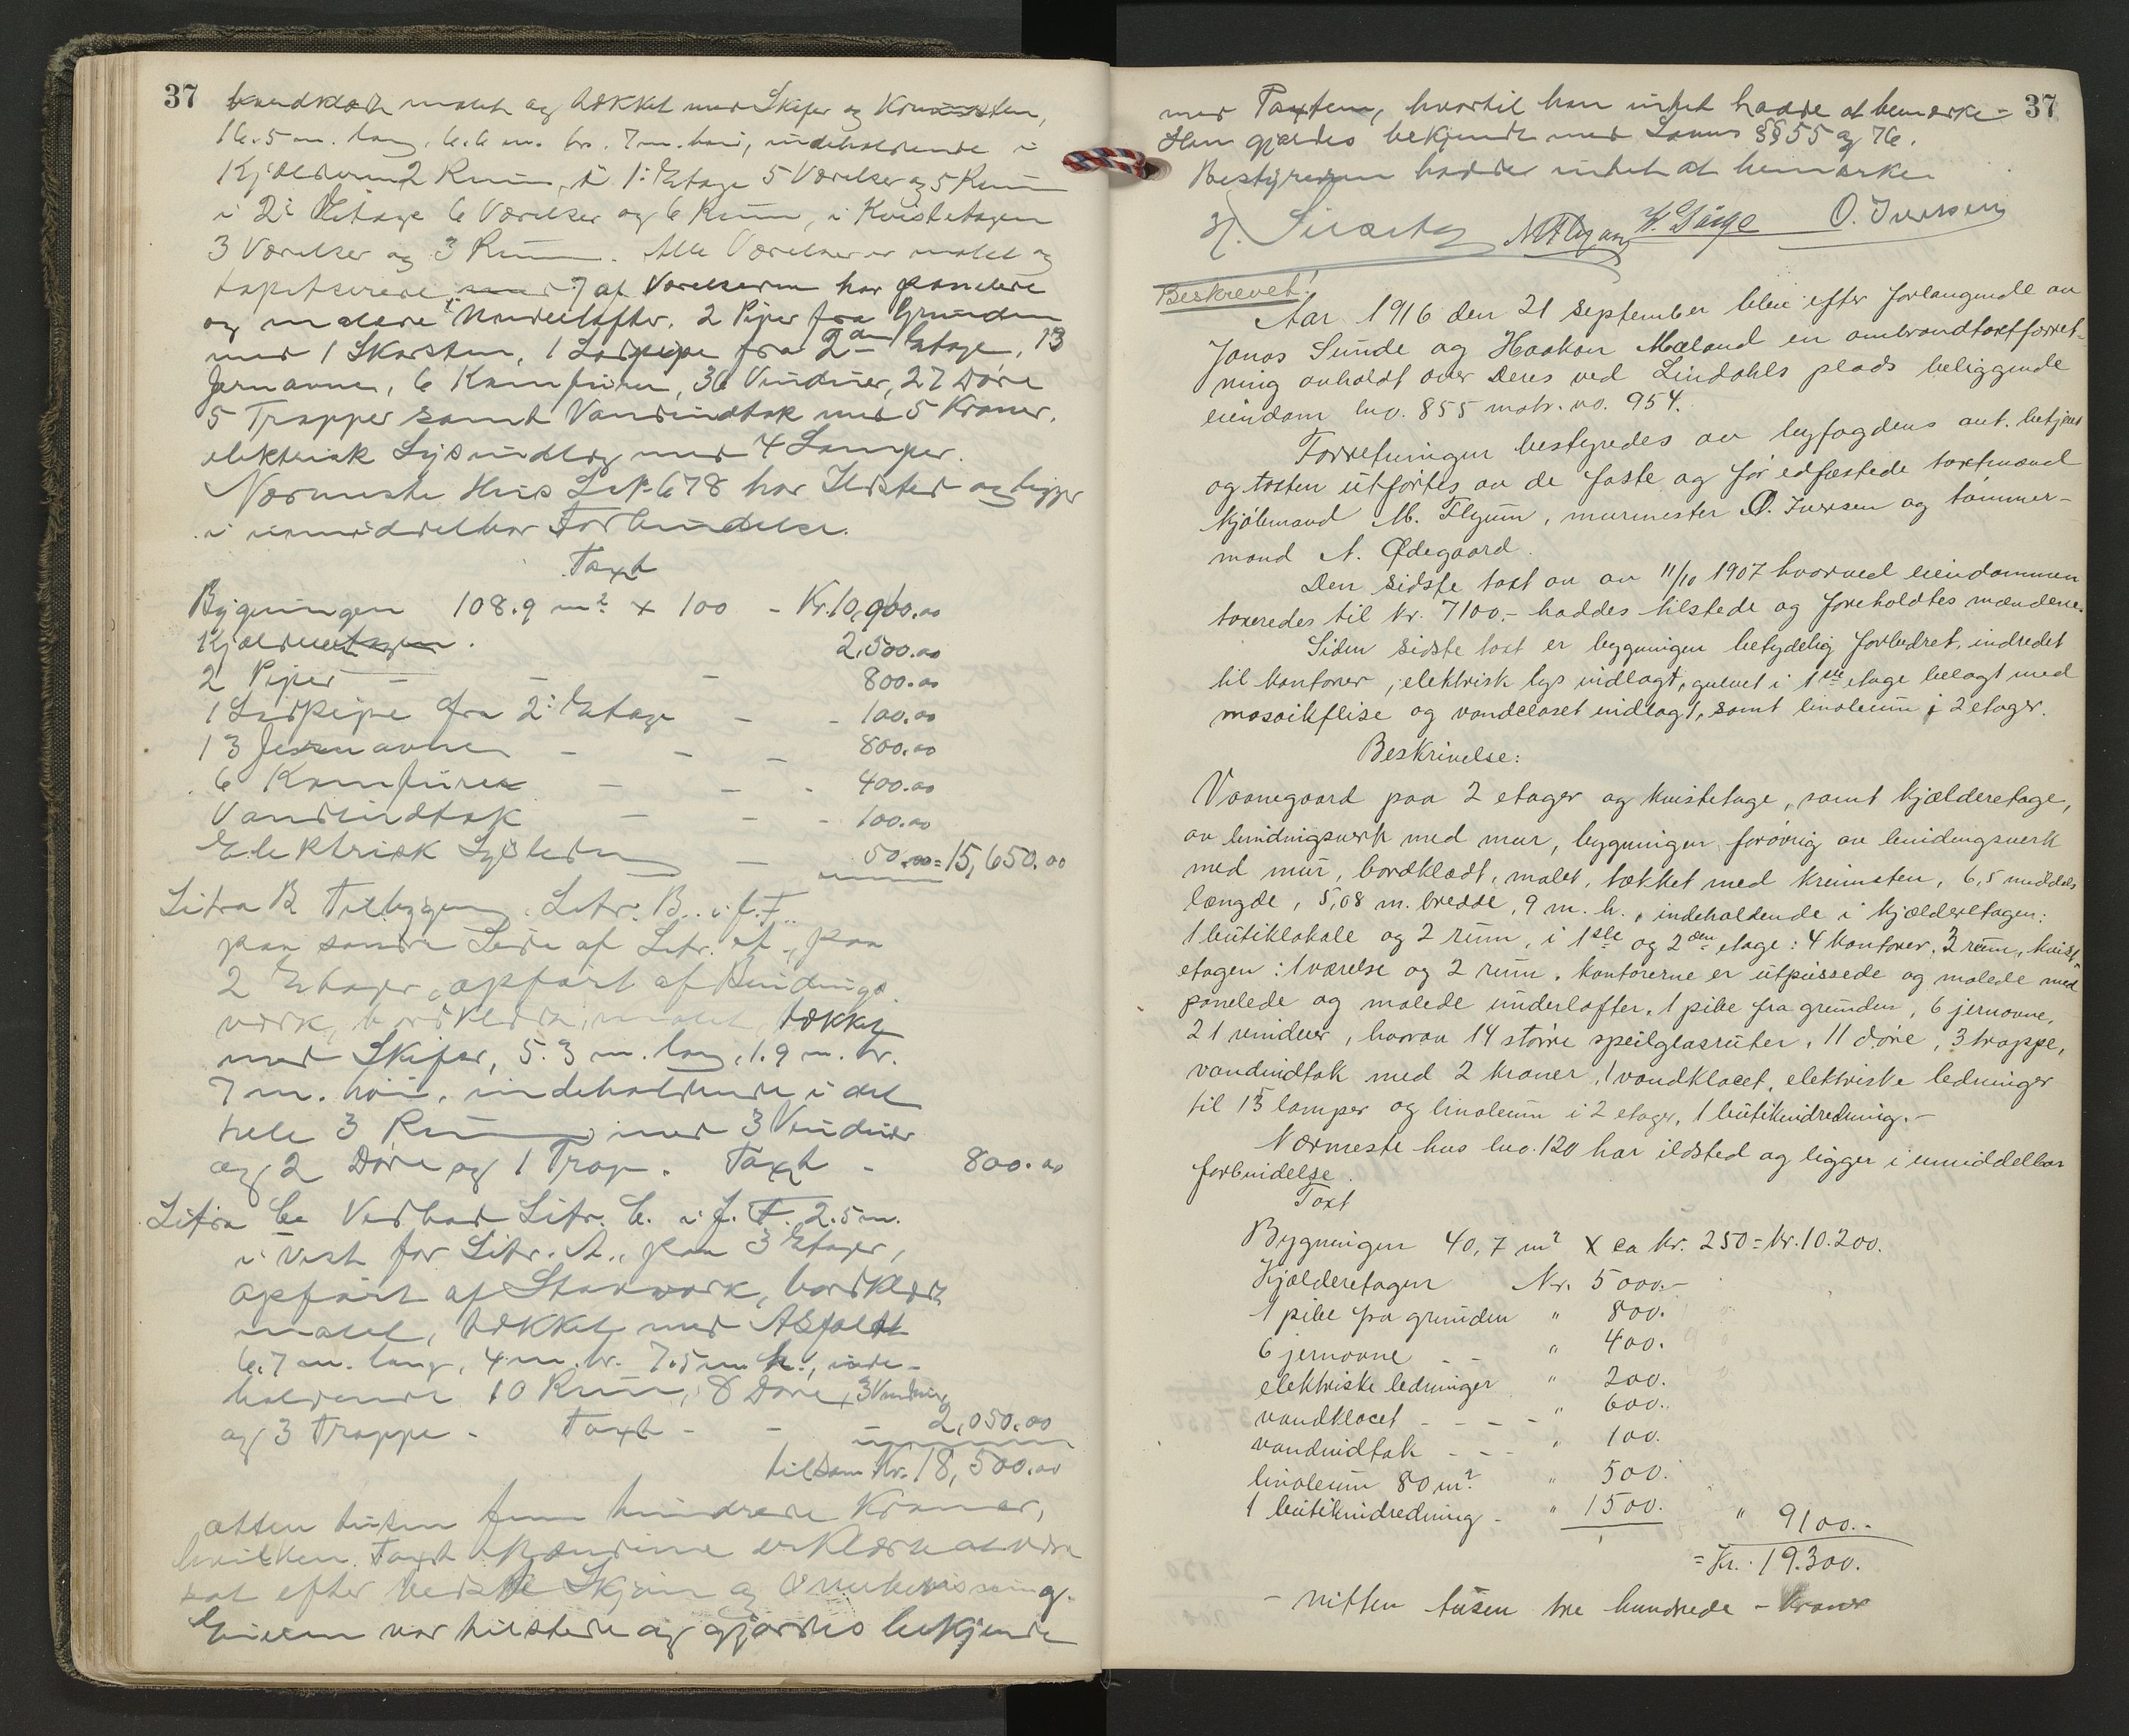 37
bordklædt malet og tækket med Skifer og Krumsten,
16.5 m. lang, 6.6 m. br. 7 m. høi, indeholdende i
Kjælderen 2 Rum, i 1: Etage 5 Værelser og 5 Rum
i 2: Etage 6 Værelser og 6 Rum, i Kvistetagen
3 Værelser og 3 Rum. Alle Værelser er malet og
tapetserede, 7 af Værelserne har panelede
og malede Underlofter. 2 Piper fra Grunden
med 1 Skorsten, 1 Løspipe fra 2den Etage, 13
Jernovne, 6 Komfurer, 36 Vinduer, 27 Døre
5 Trapper samt Vandindtak med 5 Kraner.
elektrisk Lysindlæg med 4 Lamper.
Nærmeste Hus LNo 678 har Ildsted og ligger
i umiddelbar Forbindelse.
Taxt
Bygningen 108.9 m² x 100 - Kr. 10,900.00
Kjælderetagen. 2,500.00
2 Piper - - - 800.00
1 Løspipe fra 2: Etage - - 100.00
13 Jernovne - - - 800.00
6 Komfurer - - - 400.00
Vandindtak - - - 100.00
Elektrisk Lysledn - 50.00 = 15,650.00
Litra B Tilbygning Litr. B. i f. F.
paa søndre Side af Litr. A, paa
2 Etager, opført af Bindings
værk, bordklædt, malet, tækket
med Skifer, 5.3 m. lang, 1.9 m. br.
7 m. høi, indeholdende i det
hele 3 Rum med 3 Vinduer
og 2 Døre og 1 Trap. Taxt - 800.00
Litra C. Vedbod Litr. C. i f. F. 2.5 m.
i Vest for Litr. A., paa 3 Etager,
opført af Stavværk, bordklædt
malet, tækket med Asfalt
6.7 m. lang, 4 m. br. 7.5 m. h., inde-
holdende 10 Rum, 8 Døre, 3 Vinduer
og 3 Trappe - Taxt - - 2,050.00
tilsam Kr. 18,500.00
atten tusen fem hundrede Kroner,
hvilken Taxt Mændene erklærte at være
sat efter bedste Skjøn og Overbevisning.
Eieren var tilstede og gjordes bekjendt
37
med Taxten, hvortil han intet hadde at bemerke -
Han gjordes bekjendt med Lovens §§ 55 og 76.
Bestyreren hadde intet at bemerke
O. Iversen
Beskrevet!
Aar 1916 den 21 september blev efter forlangende av
Jonas Sunde og Haakon Mæland en ombrandtaxtforret-
ning avholdt over deres ved Lindahls plads beliggende
eiendom lno. 855 matr. no. 954.
Forretningen bestyredes av byfogdens aut. betjent
og taxten utførtes av de faste og før edfæstede taxtmænd
kjøbmand M. Flyum, murmester O. Iversen og tømmer-
mand A. Ødegaard.
Den sidste taxt av av 11/10 1907 hvorved eiendommen
taxeredes til kr. 7100.- haddes tilstede og foreholdtes mændene.
Siden sidste taxt er bygningen betydelig forbedret, indredet
til kontorer, elektrisk lys indlagt, gulvet i 1ste etage belagt med
mosaikflise og vandcloset indlagt, samt linoleum i 2 etager.
Beskrivelse:
Vaanegaard paa 2 etager og kvistetage, samt kjælderetage,
av bindingsverk med mur, bygningen forøvrig av bindingsverk
med mur, bordklædt, malet, tækket med krumsten, 6,5 middels
længde, 5,08 m. bredde, 9 m. h., indeholdende i kjælderetagen:
1 butiklokale og 2 rum, i 1ste og 2den etage: 4 kontorer, 2 rum, kvist-
etagen: 1 værelse og 2 rum. kontorerne er utpussede og malede med
panelede og malede underlofter. 1 pibe fra grunden, 6 jernovne,
21 vinduer, hvorav 14 større speilglasruter, 11 døre, 3 trappe,
vandindtak med 2 kraner, 1 vandklocet, elektriske ledninger
til 15 lamper og linoleum i 2 etager, 1 butikindredning. -
Nærmeste hus lno. 120 har ildsted og ligger i umiddelbar
forbindelse.
Taxt
Bygningen 40,7 m² x ca kr. 250 = kr. 10.200.
Kjælderetagen Kr. 5000.-
1 pibe fra grunden " 800.
6 jernovne - - " 400.
elektriske ledninger " 200.
vandklocet - - - - " 600.
vandindtak - - - " 100.
linoleum 80 m². " 500.
1 butikindredning - " 1500. " 9100.-
= Kr. 19.300.
- nitten tusen tre hundrede - kroner